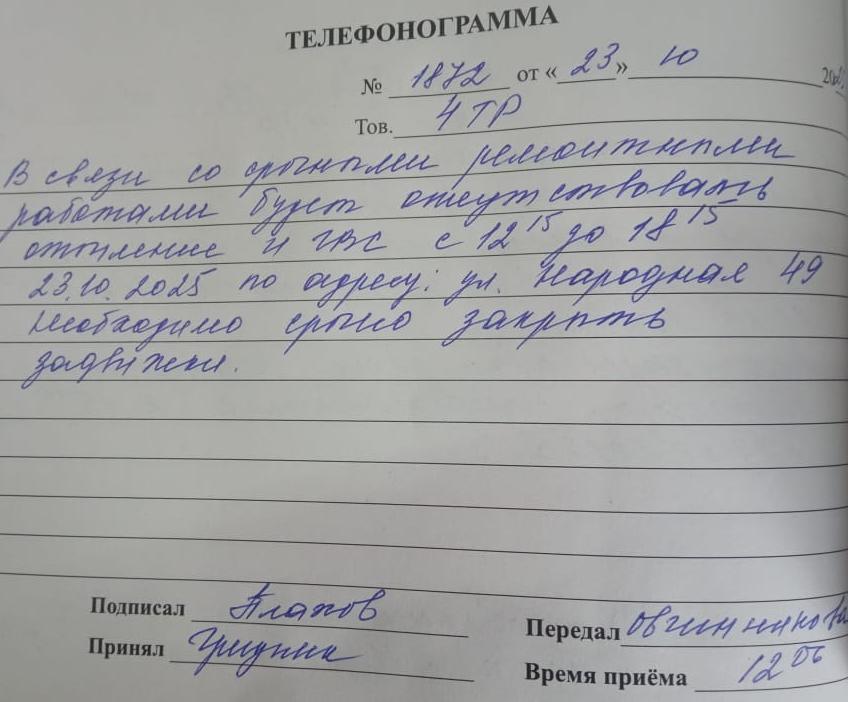 ТЕЛЕФОНОГРАММА
№ 1872 от «23» 10 20
Тов. 4 ТР
В связи со срочными ремонтными
работами будет отсутствовать
отопление и ГВС с 12 15 до 18 15
23.10.2025 по адресу: ул. Народная 49
Необходимо срочно закрыть
задвижки.
Подписал Плахов
Передал Овчинникова
Принял
Время приёма 12 06